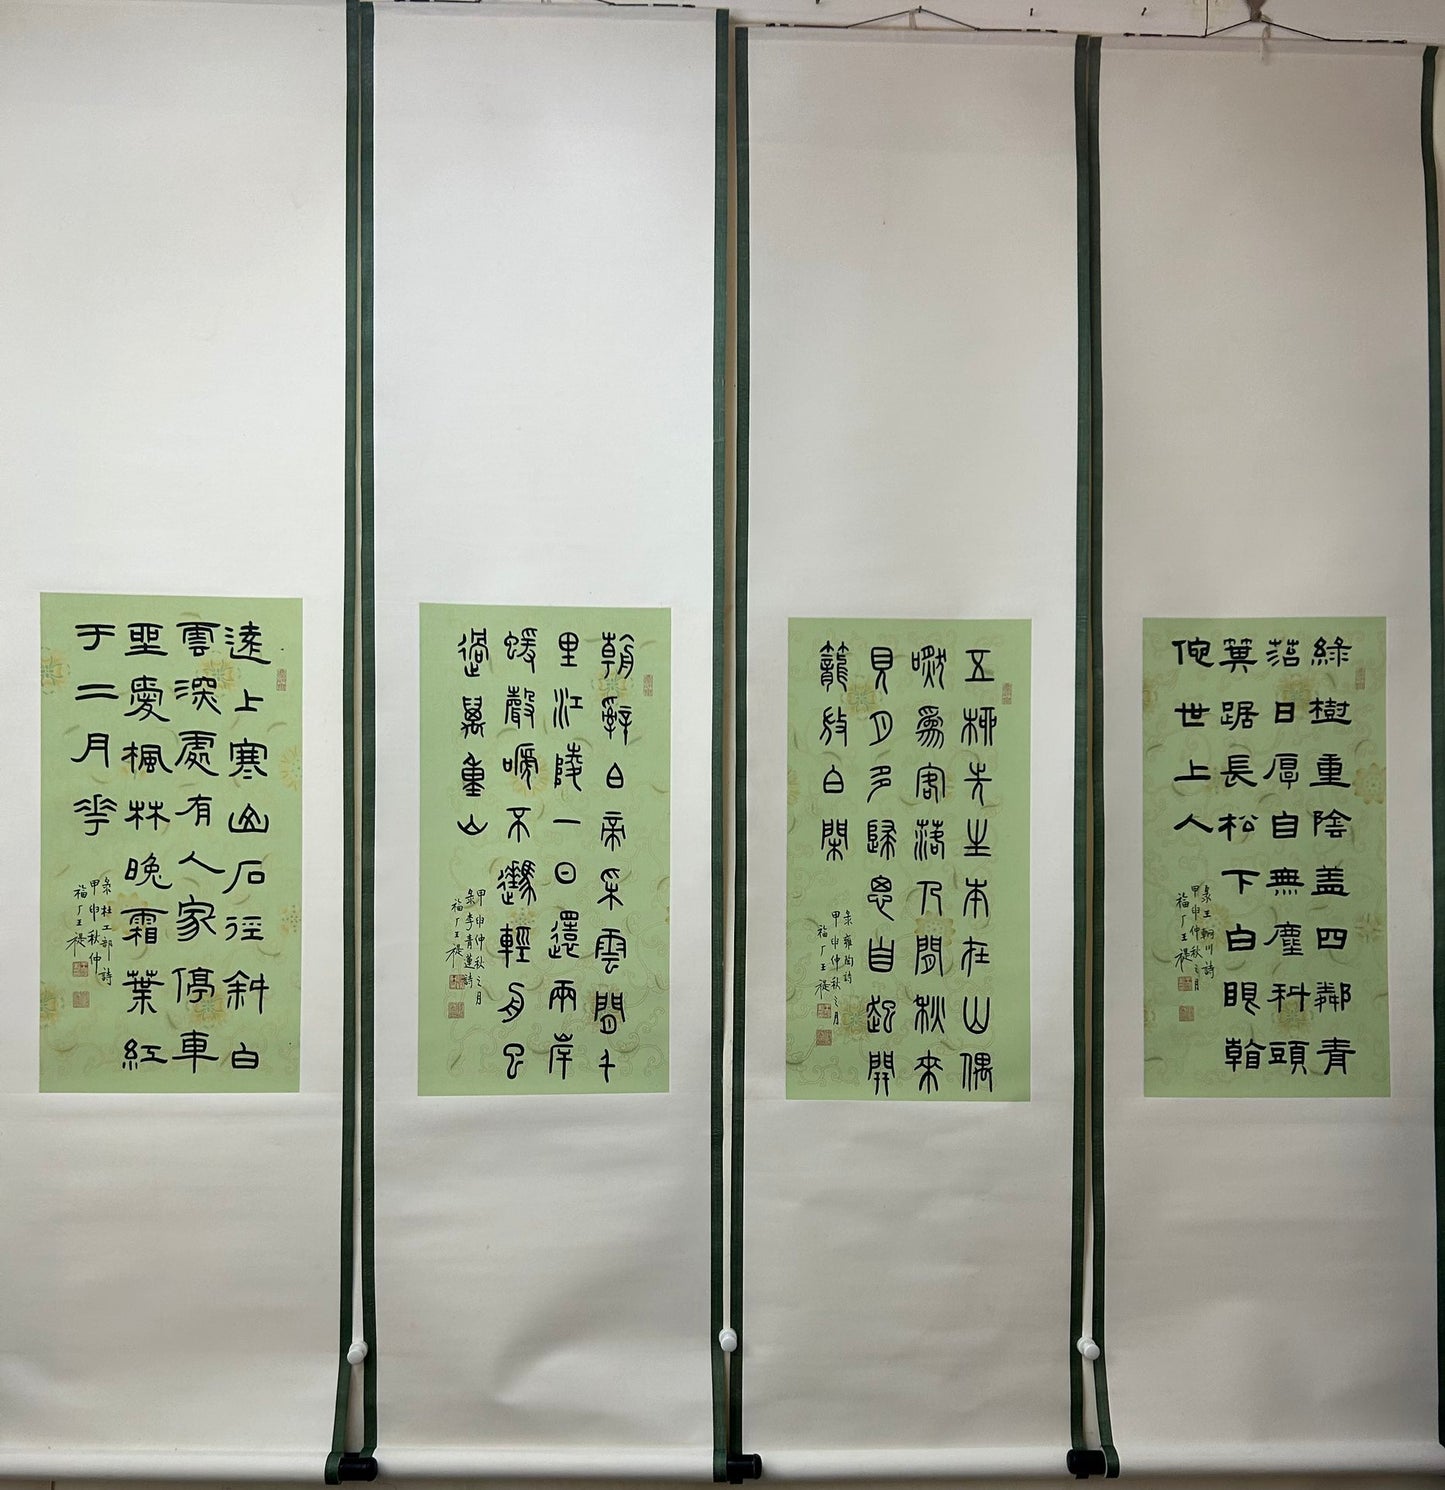 綠樹重陰蓋四鄰青
苔日厚自無塵科頭
箕踞長松下白眼看
佗世上人
彔王輞川詩
甲申仲秋之月
福厂王禔
五柳先生本在山偶
然爲客落人間秋來
見月多歸思自起開
籠放白閑
彔雍陶詩
甲申仲秋之月
福厂王禔
朝辭白帝采雲間千
里江陵一日還兩岸
蝯聲嗁不住輕舟已
過萬重山
甲申仲秋之月
彔李青蓮詩
福厂王禔
遠上寒山石徑斜白
雲深處有人家停車
坐愛楓林晚霜葉紅
于二月華
彔杜工部詩
甲申秋仲
福厂王禔